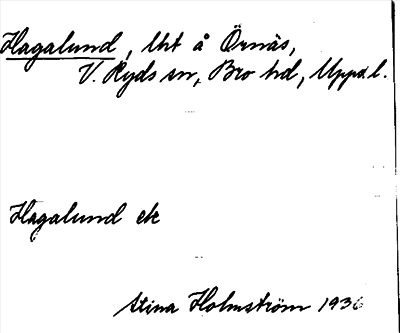 Hagalund, lht å Örnäs,
V. Ryds sn, Bro hd, Upps. l.
Hagalund ek
Stina Holmström 1936